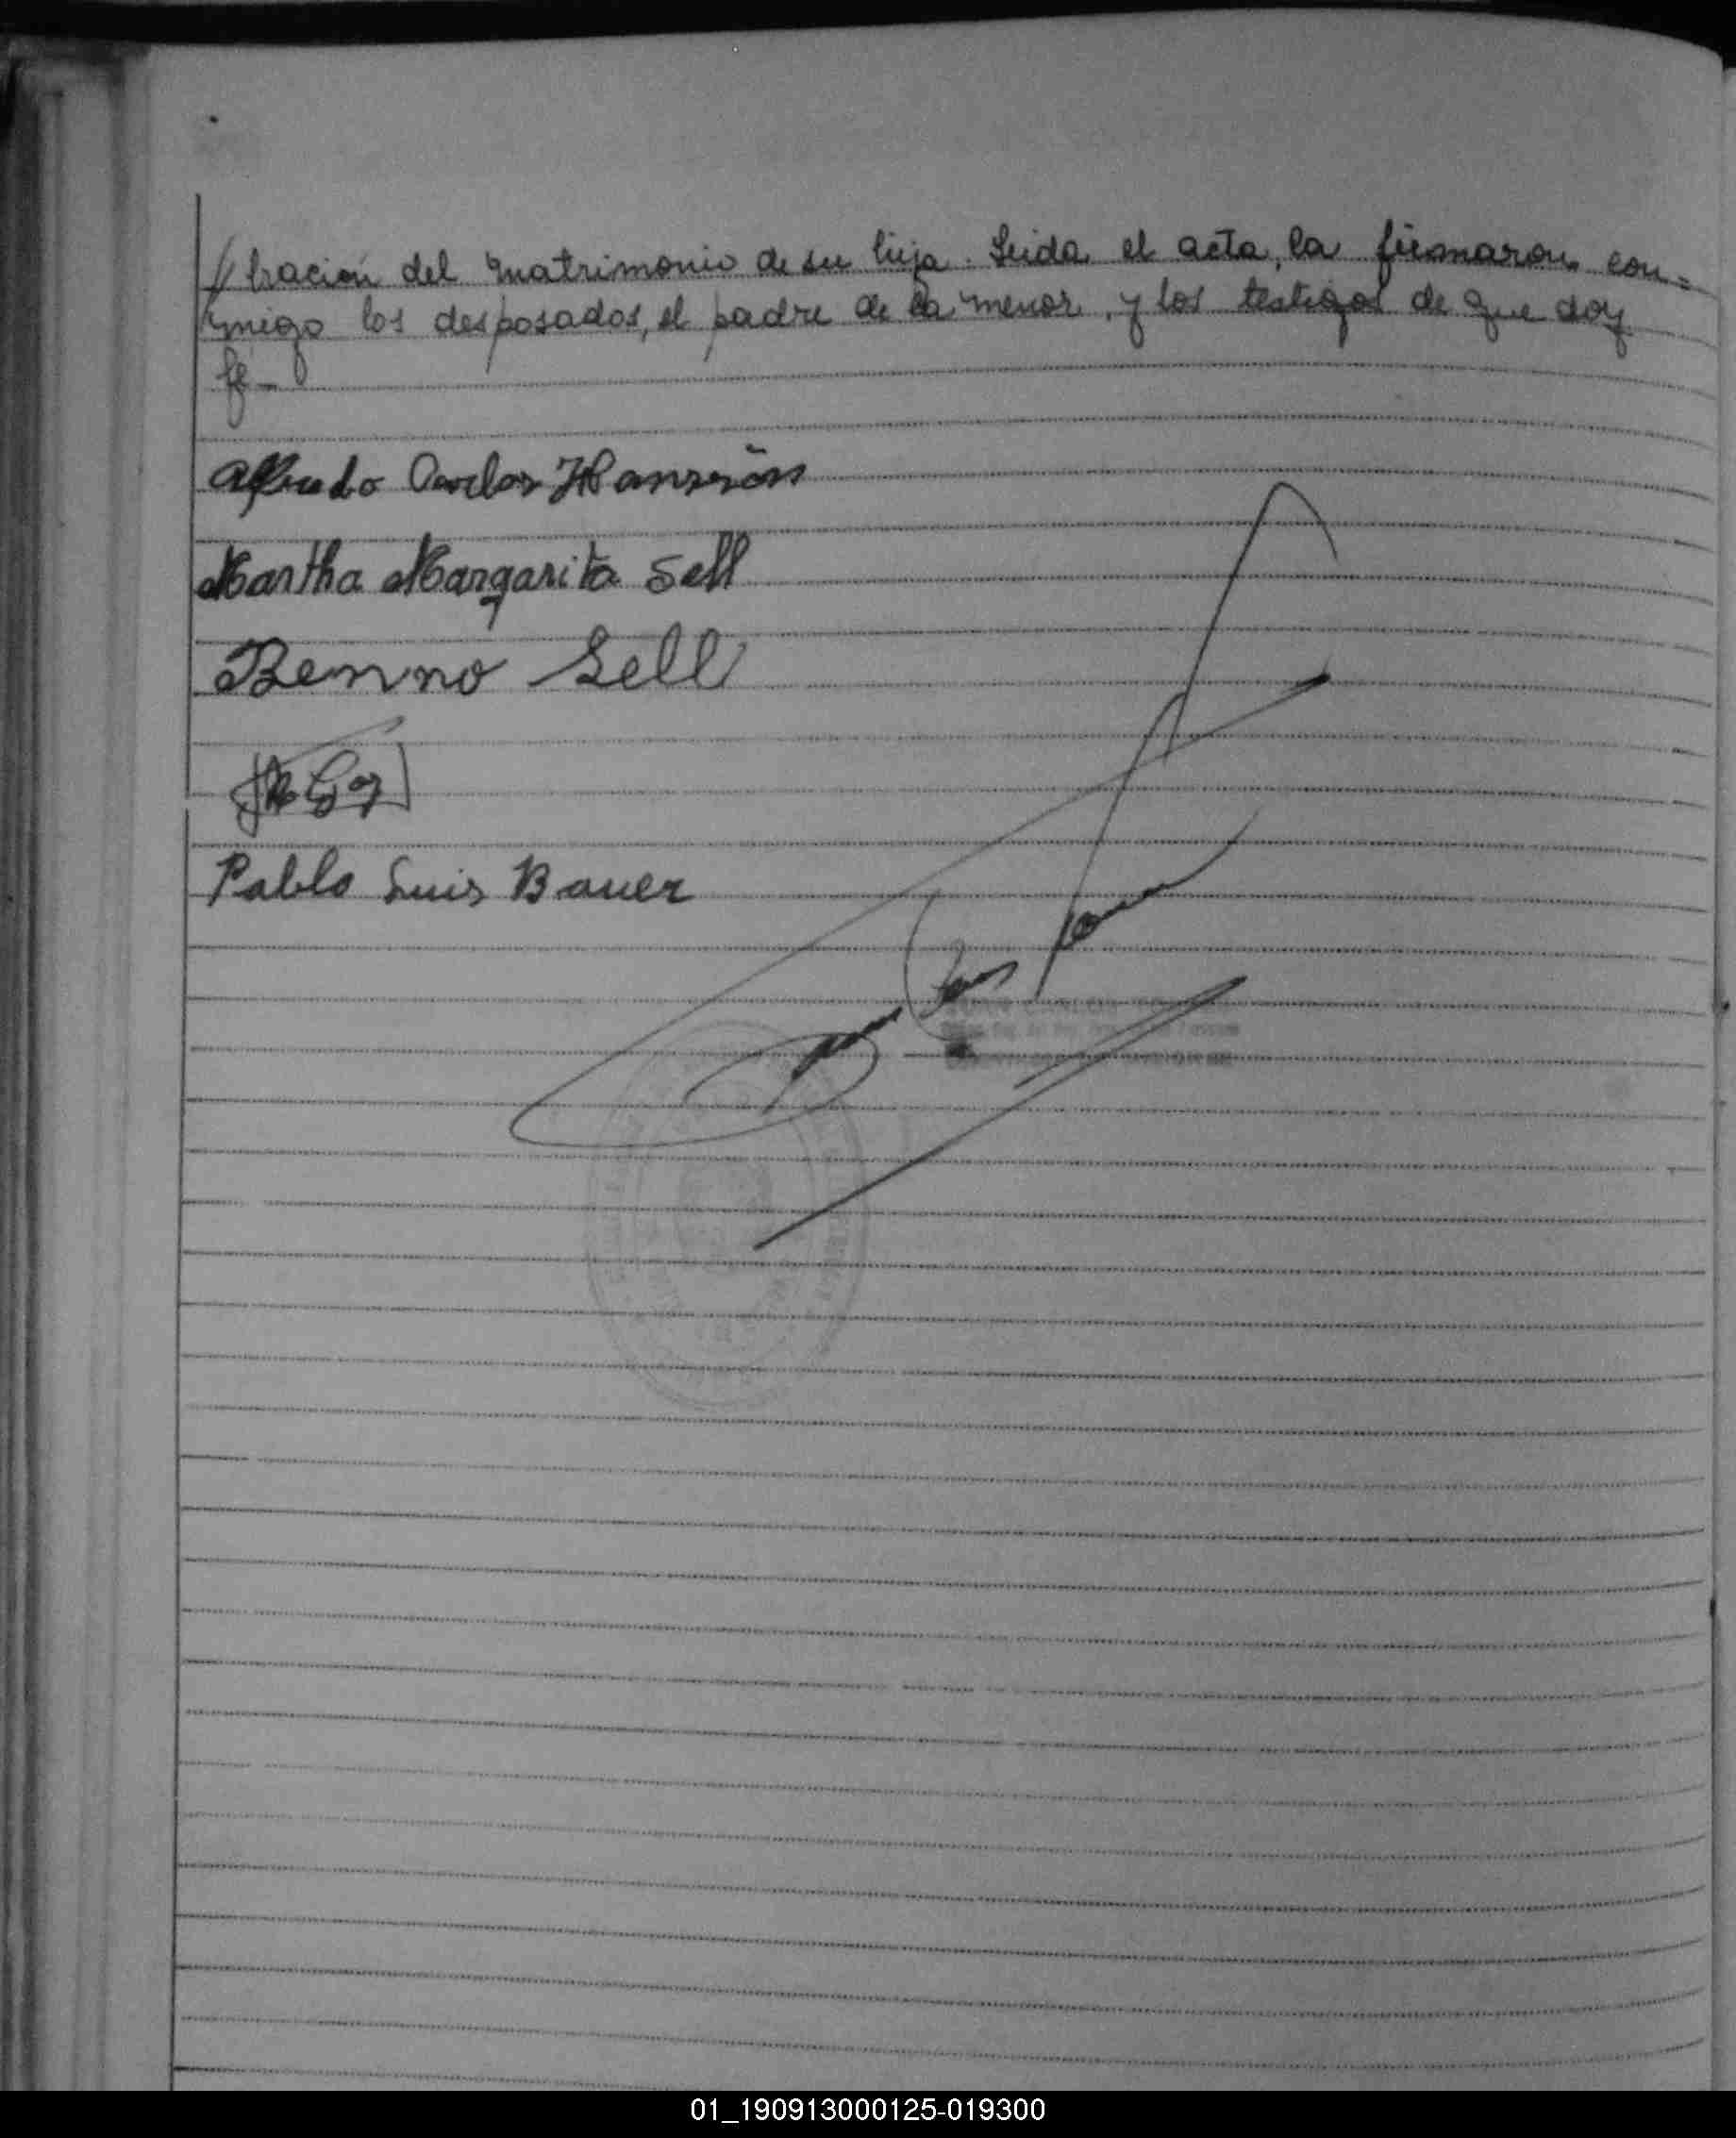 /bracion del matrimonio de su hija. Leida el acta, la firmaron con=
migo los desposados, el padre de la menor, y los testigos de que doy
fé-
Alfredo Carlos
Martha Margarita Sell
Benno Sell
Pablo Luis Bauer
JUAN CARLOS
01_190913000125-019300